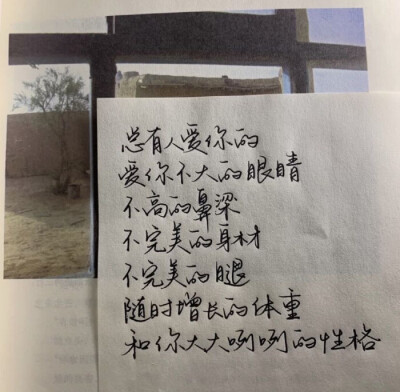 总有人爱你的
爱你不大的眼睛
不高的鼻梁
不完美的身材
不完美的腿
随时增长的体重
和你大大咧咧的性格